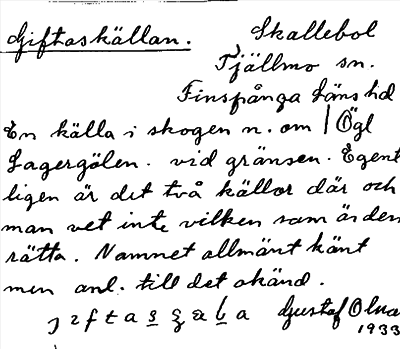 Giftaskällan. Skallebol
Tjällmo sn.
Finspånga läns hd
En källa i skogen n. om | Ögl
Lagergölen. vid gränsen. Egent
ligen är det två källor där och
man vet inte vilken som är den
rätta. Namnet allmänt känt
men anl. till det okänd.
Gustaf Olna
1933